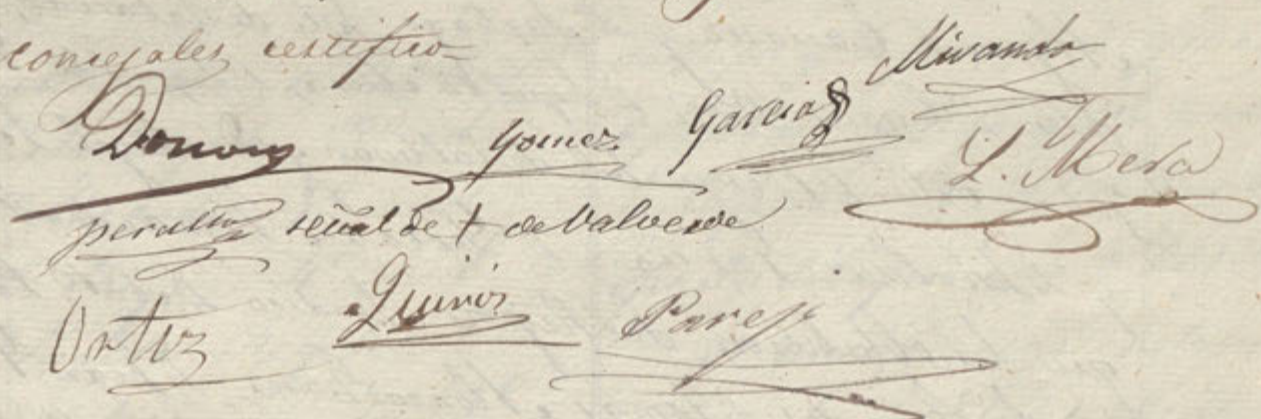 concejales certifico
Miranda
Gomez Garcia
L. Mera
peralta señal de + de Valverde
Ortiz Quirós Parejo